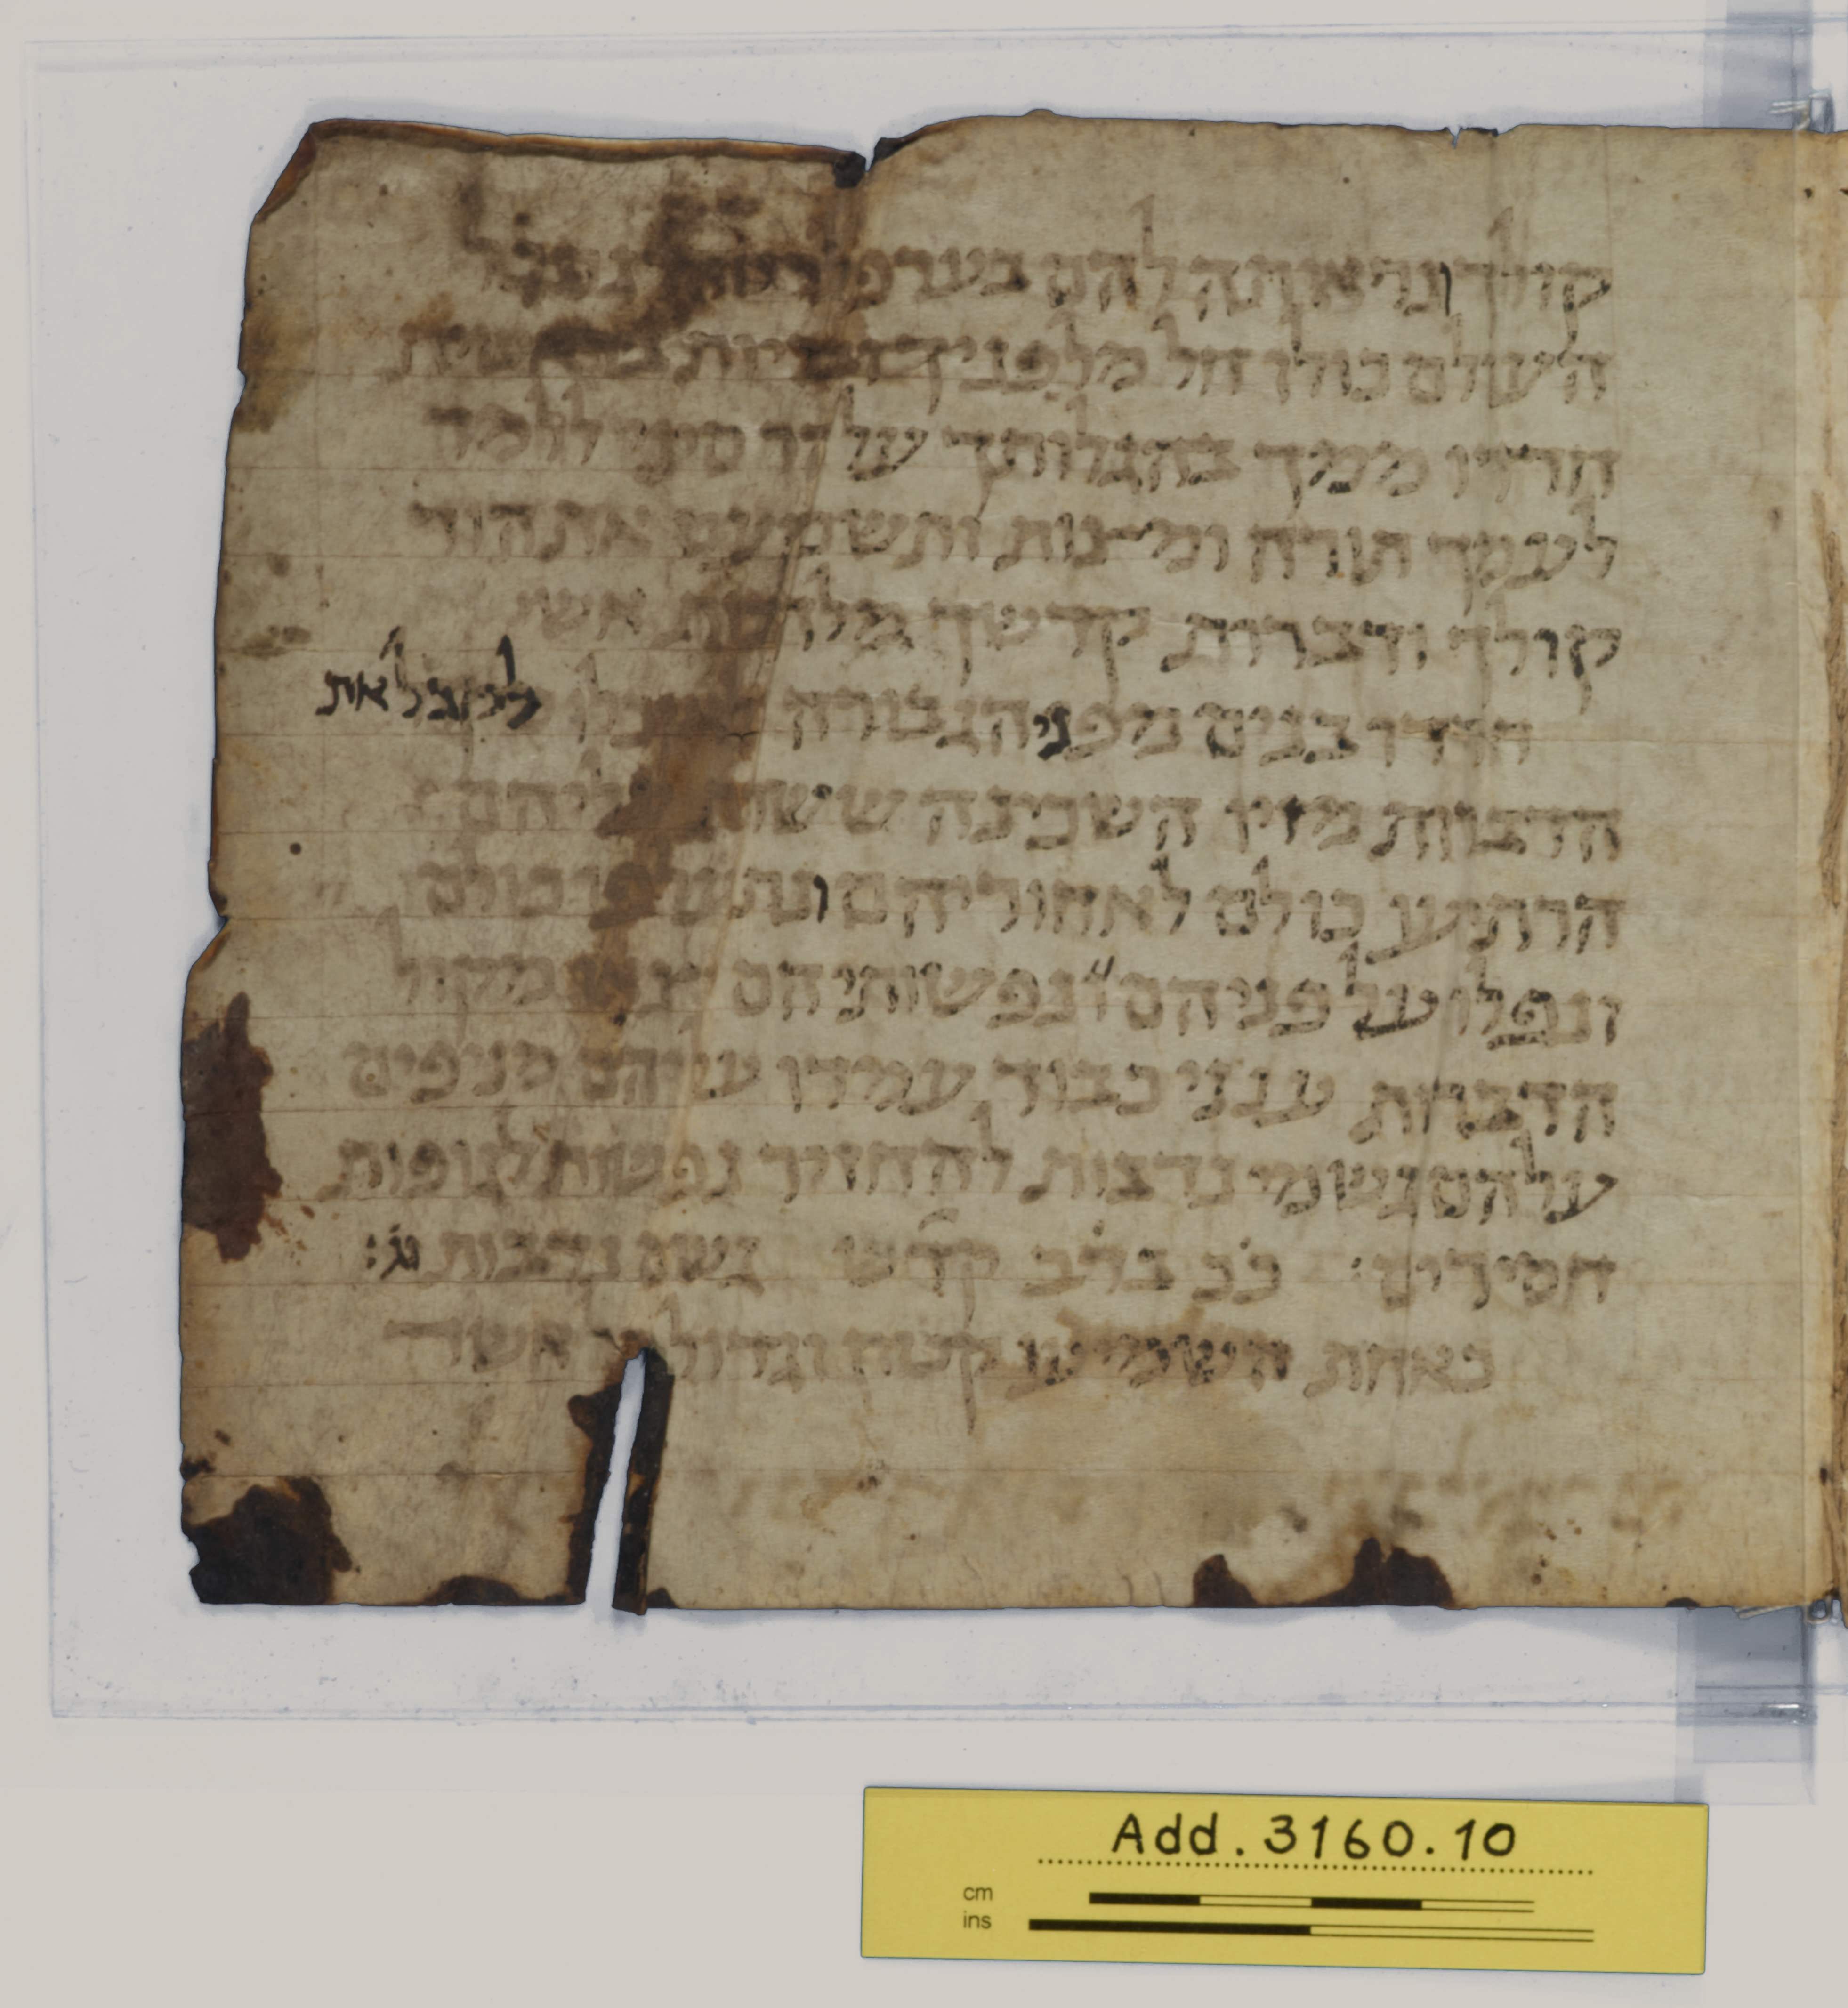 קולך ונראיתה להם בערפלי טוהר גם כל
העולם כולו חל מלפניך ובריות בראשית
חרדו ממך בהגלותך על הר סיני ללמד
לעמך תורה ומצות ותשמיעם את הוד
קולך ודברות קדשך מלהבות אש׃
חרדו בנים מפני הגבורה קול
לקבל את
הדברות מזיו השכינה ששרת עליהם׃
הרתיע כולם לאחוריהם ונתעלפו כולם
ונפלו על פניהם ונפשותיהם יצאו מקול
הדברות ענני כבוד עמדו עליהם מניפים
עליהם גשמי נדבות להחזיר נפשות לגופות
חסידים׃ ככ ברב קדש גשם נדבות וג׃
כאחת השמיעו קטן וגדול אשר
Add.3160.10
cm
ins